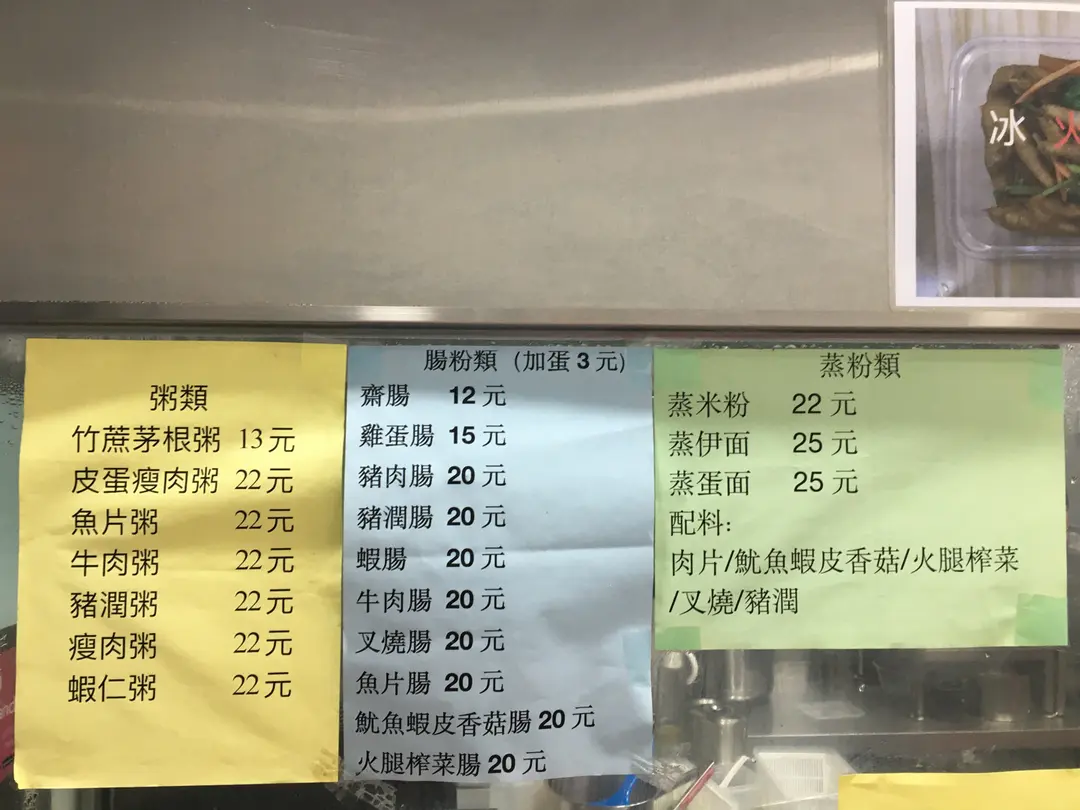 冰火
粥類
竹蔗茅根粥 13元
皮蛋瘦肉粥 22元
魚片粥 22元
牛肉粥 22元
豬潤粥 22元
瘦肉粥 22元
蝦仁粥 22元
腸粉類（加蛋 3 元)
齋腸 12 元
雞蛋腸 15 元
豬肉腸 20 元
豬潤腸 20 元
蝦腸 20 元
牛肉腸 20 元
叉燒腸 20 元
魚片腸 20 元
魷魚蝦皮香菇腸 20 元
火腿榨菜腸 20 元
蒸粉類
蒸米粉 22 元
蒸伊面 25 元
蒸蛋面 25 元
配料:
肉片/魷魚蝦皮香菇/火腿榨菜
/叉燒/豬潤